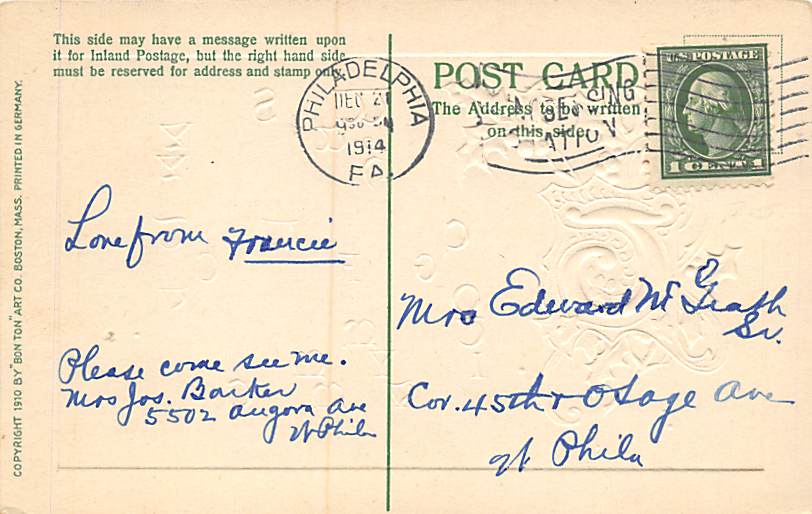 This side may have a message written upon
it for Inland Postage, but the right hand side
must be reserved for address and stamp only.
COPYRIGHT 1910 BY "BON TON" ART CO. BOSTON, MASS. PRINTED IN GERMANY.
PHILADELPHIA
DEC 21
1914
PA.
POST CARD
The Address to be written
on this side.
STATION
U.S. POSTAGE
1 CENT 1
Love from Francie
Please come see me.
Mrs Jos. Barker
5502 Angora Ave
W. Phila
Mrs Edward McGrath
Sr.
Cor. 45th & Osage Ave
W. Phila